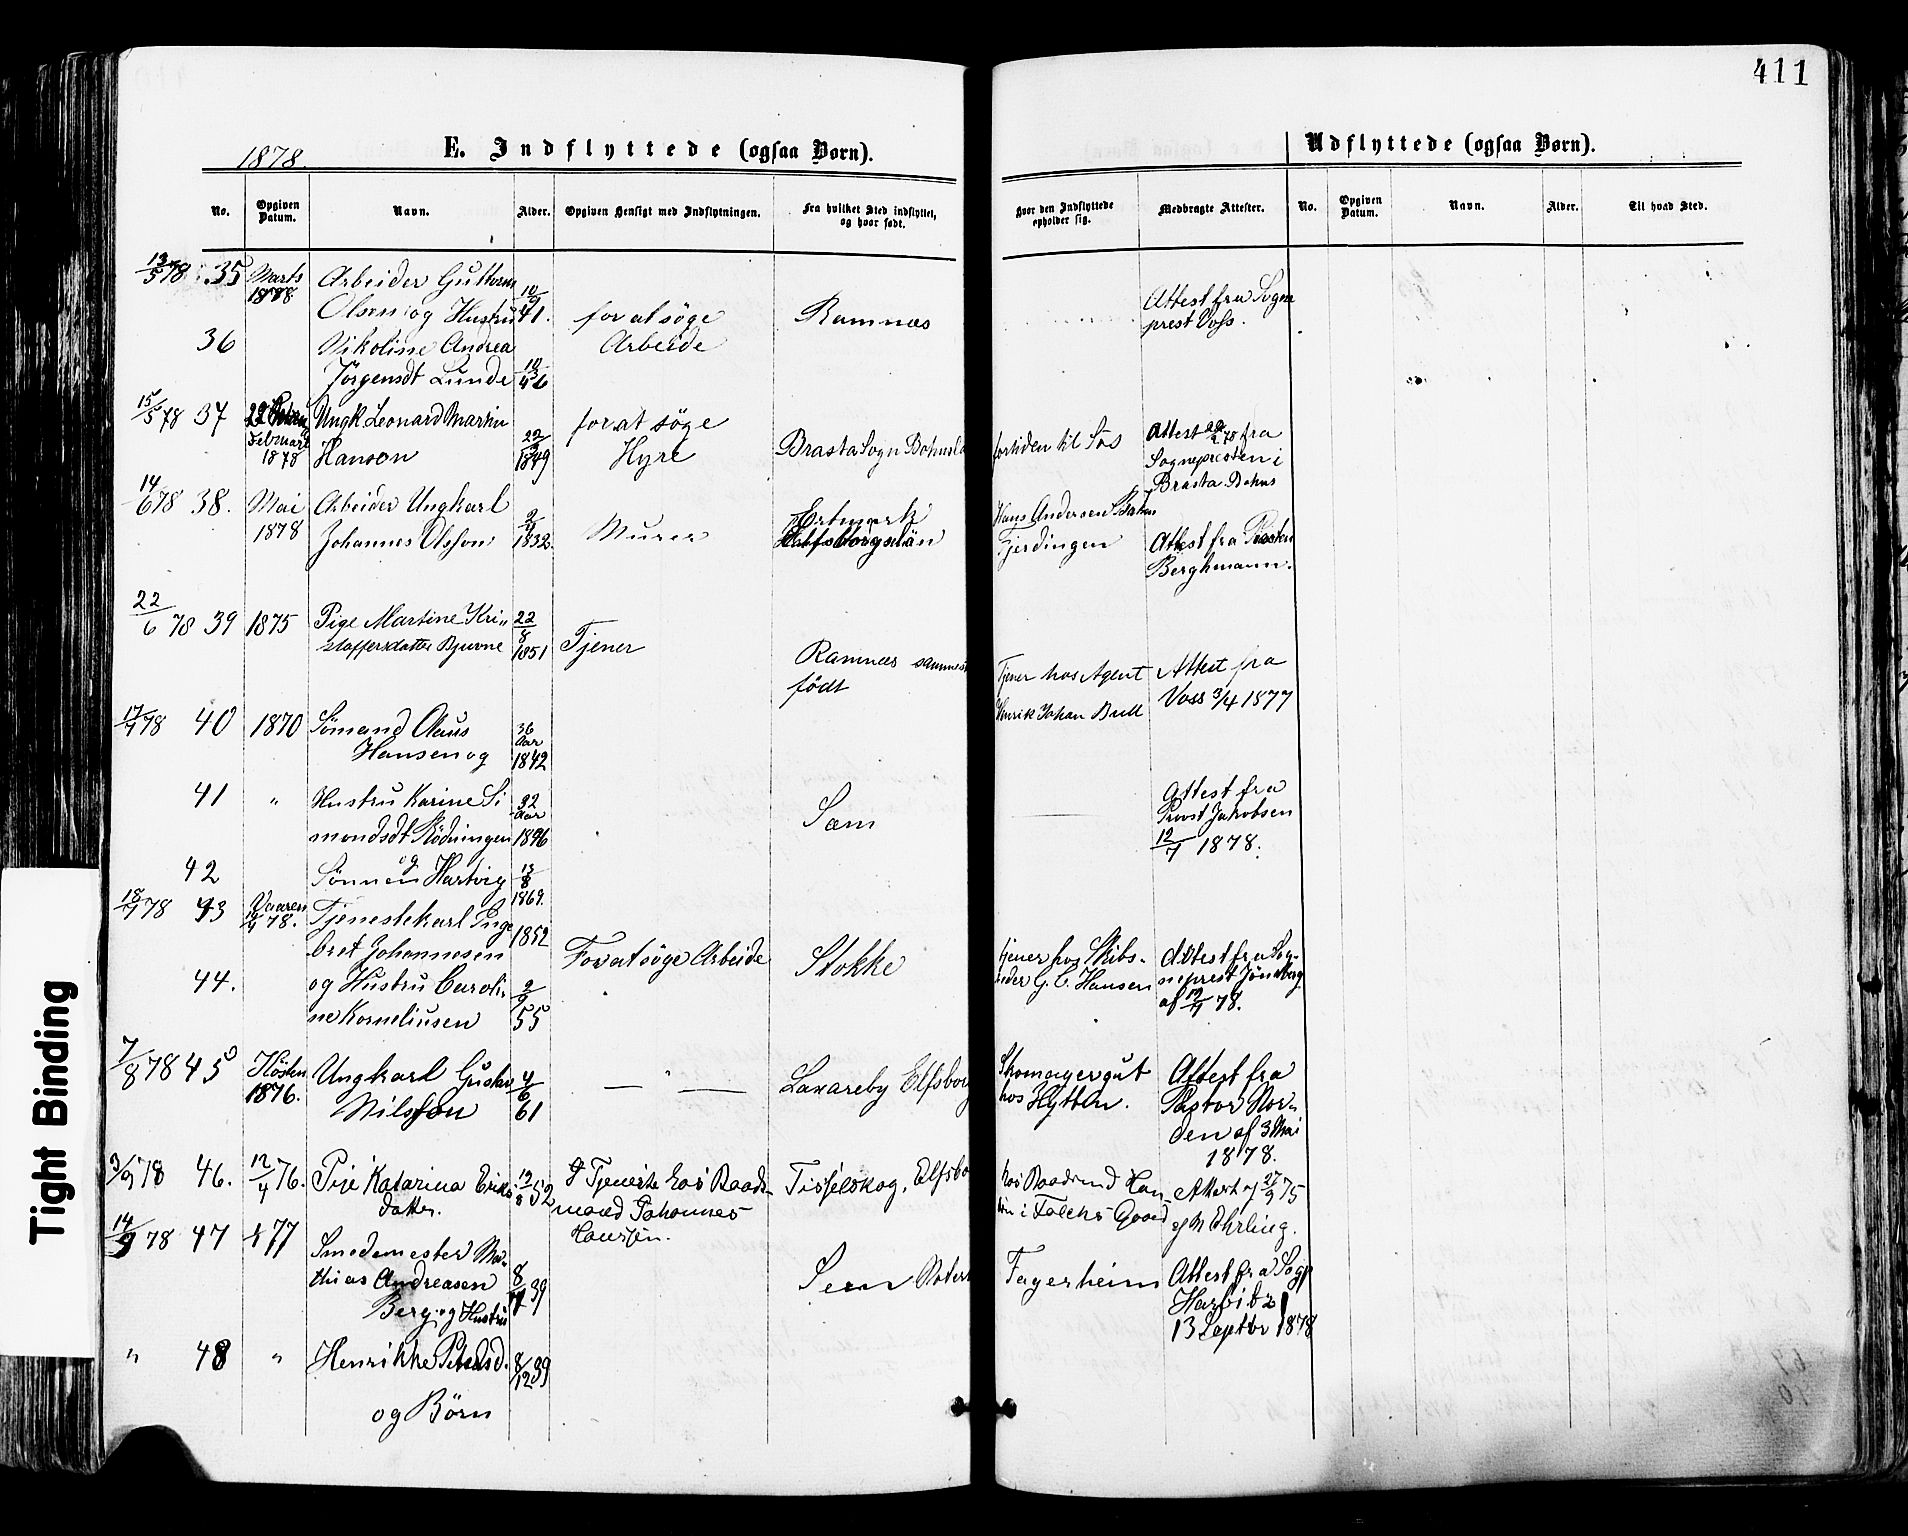 411
1878.
E. Indflyttede (ogsaa Børn).
Udflyttede (ogsaa Børn).
No.
Opgiven Datum.
Navn.
Alder.
Opgiven Hensigt med Indflytningen.
Fra hvilket Sted indflyttet, og hvor født.
Hvor den Indflyttede opholder sig.
Medbragte Attester.
No.
Opgiven Datum.
Navn.
Alder.
Til hvad Sted.
13/5 78 35 Marts 1878
Arbeider Guttorm
Olsen og Hustru 10/9 41.
for at söge Arbeide
Ramnæs
Attest fra Sogne
prest Voss.
36 Nikoline Andrea
Jörgensdt Lunde 10/3 46
15/5 78 37
Februar 1878
Ungk Leonard Martin
Hanson 22/2 1849
for at söge
Hyre
Brasta Sogn Bohuslä
fortiden til Sös
Attest 22/2 78 fra
Sognepresten i
Brasta Bohus
14/6 78 38. Mai 1878
Arbeider Ungkarl
Johannes Olsson 1832
Murer
Elfsborgslän
Hans Andersen
Fjerdingen
Attest fra Presten
Berghmann.
22/6 78 39 1875
Pige Martine Kri-
stoffersdatter Bjuvne 22/8 1851
Tjener
Ramnæs sammest
födt
Tjener hos Agent
Henrik Johan Bull
Attest fra
Voss 3/4 1877
17/7 78 40 1870
Sömand Claus
Hansen og
36 Aar 1842
41 "
Hustru Karine Si
mondsdt Rödningen
32 Aar 1846
Sæm
Attest fra
Provst Jakobsen
12/7 1878.
42
og
Sönnen Hartvig 13/8 1869.
18/7 78 43 Vaaren 78.
Tjenestekarl Inge
bret Johannesen 1852
For at söge Arbeide
Stokke
tjener hos Skibs-
reder G. C. Hansen
Attest fra Sog-
neprest Jönsberg
af 12/7 78.
44.
og Hustru Caroli-
ne Korneliusen 2/9 55
7/8 78 45 Hösten 1876.
Ungkarl Gustav
Nilsson 4/6 61
— " —
Laxareby Elfsborg
Skomagergut
hos Hytten.
Attest fra
Pastor Nor-
den af 3 Mai
1878.
3/9 78 46. 12/4 76.
Pige Katarina Eriks
datter. 12/8 52
I Tjeneste hos Raads-
mand Johannes
Hansen.
Tisselskog, Elfsbo
hos Raadmd Han
sen i Falchs Gaard
Attest 27/9 75
af M Ehrling.
14/9 78 47 77
Smedemester Ma-
thias Andreasen
Berg og Hustru
8/7 39
Sem
Fagerheim
Attest fra Sogp
Harbitz
13 Septbr 1878
" 48 "
Henrikke Petersd. 8/12 39
og Börn
Tight Binding